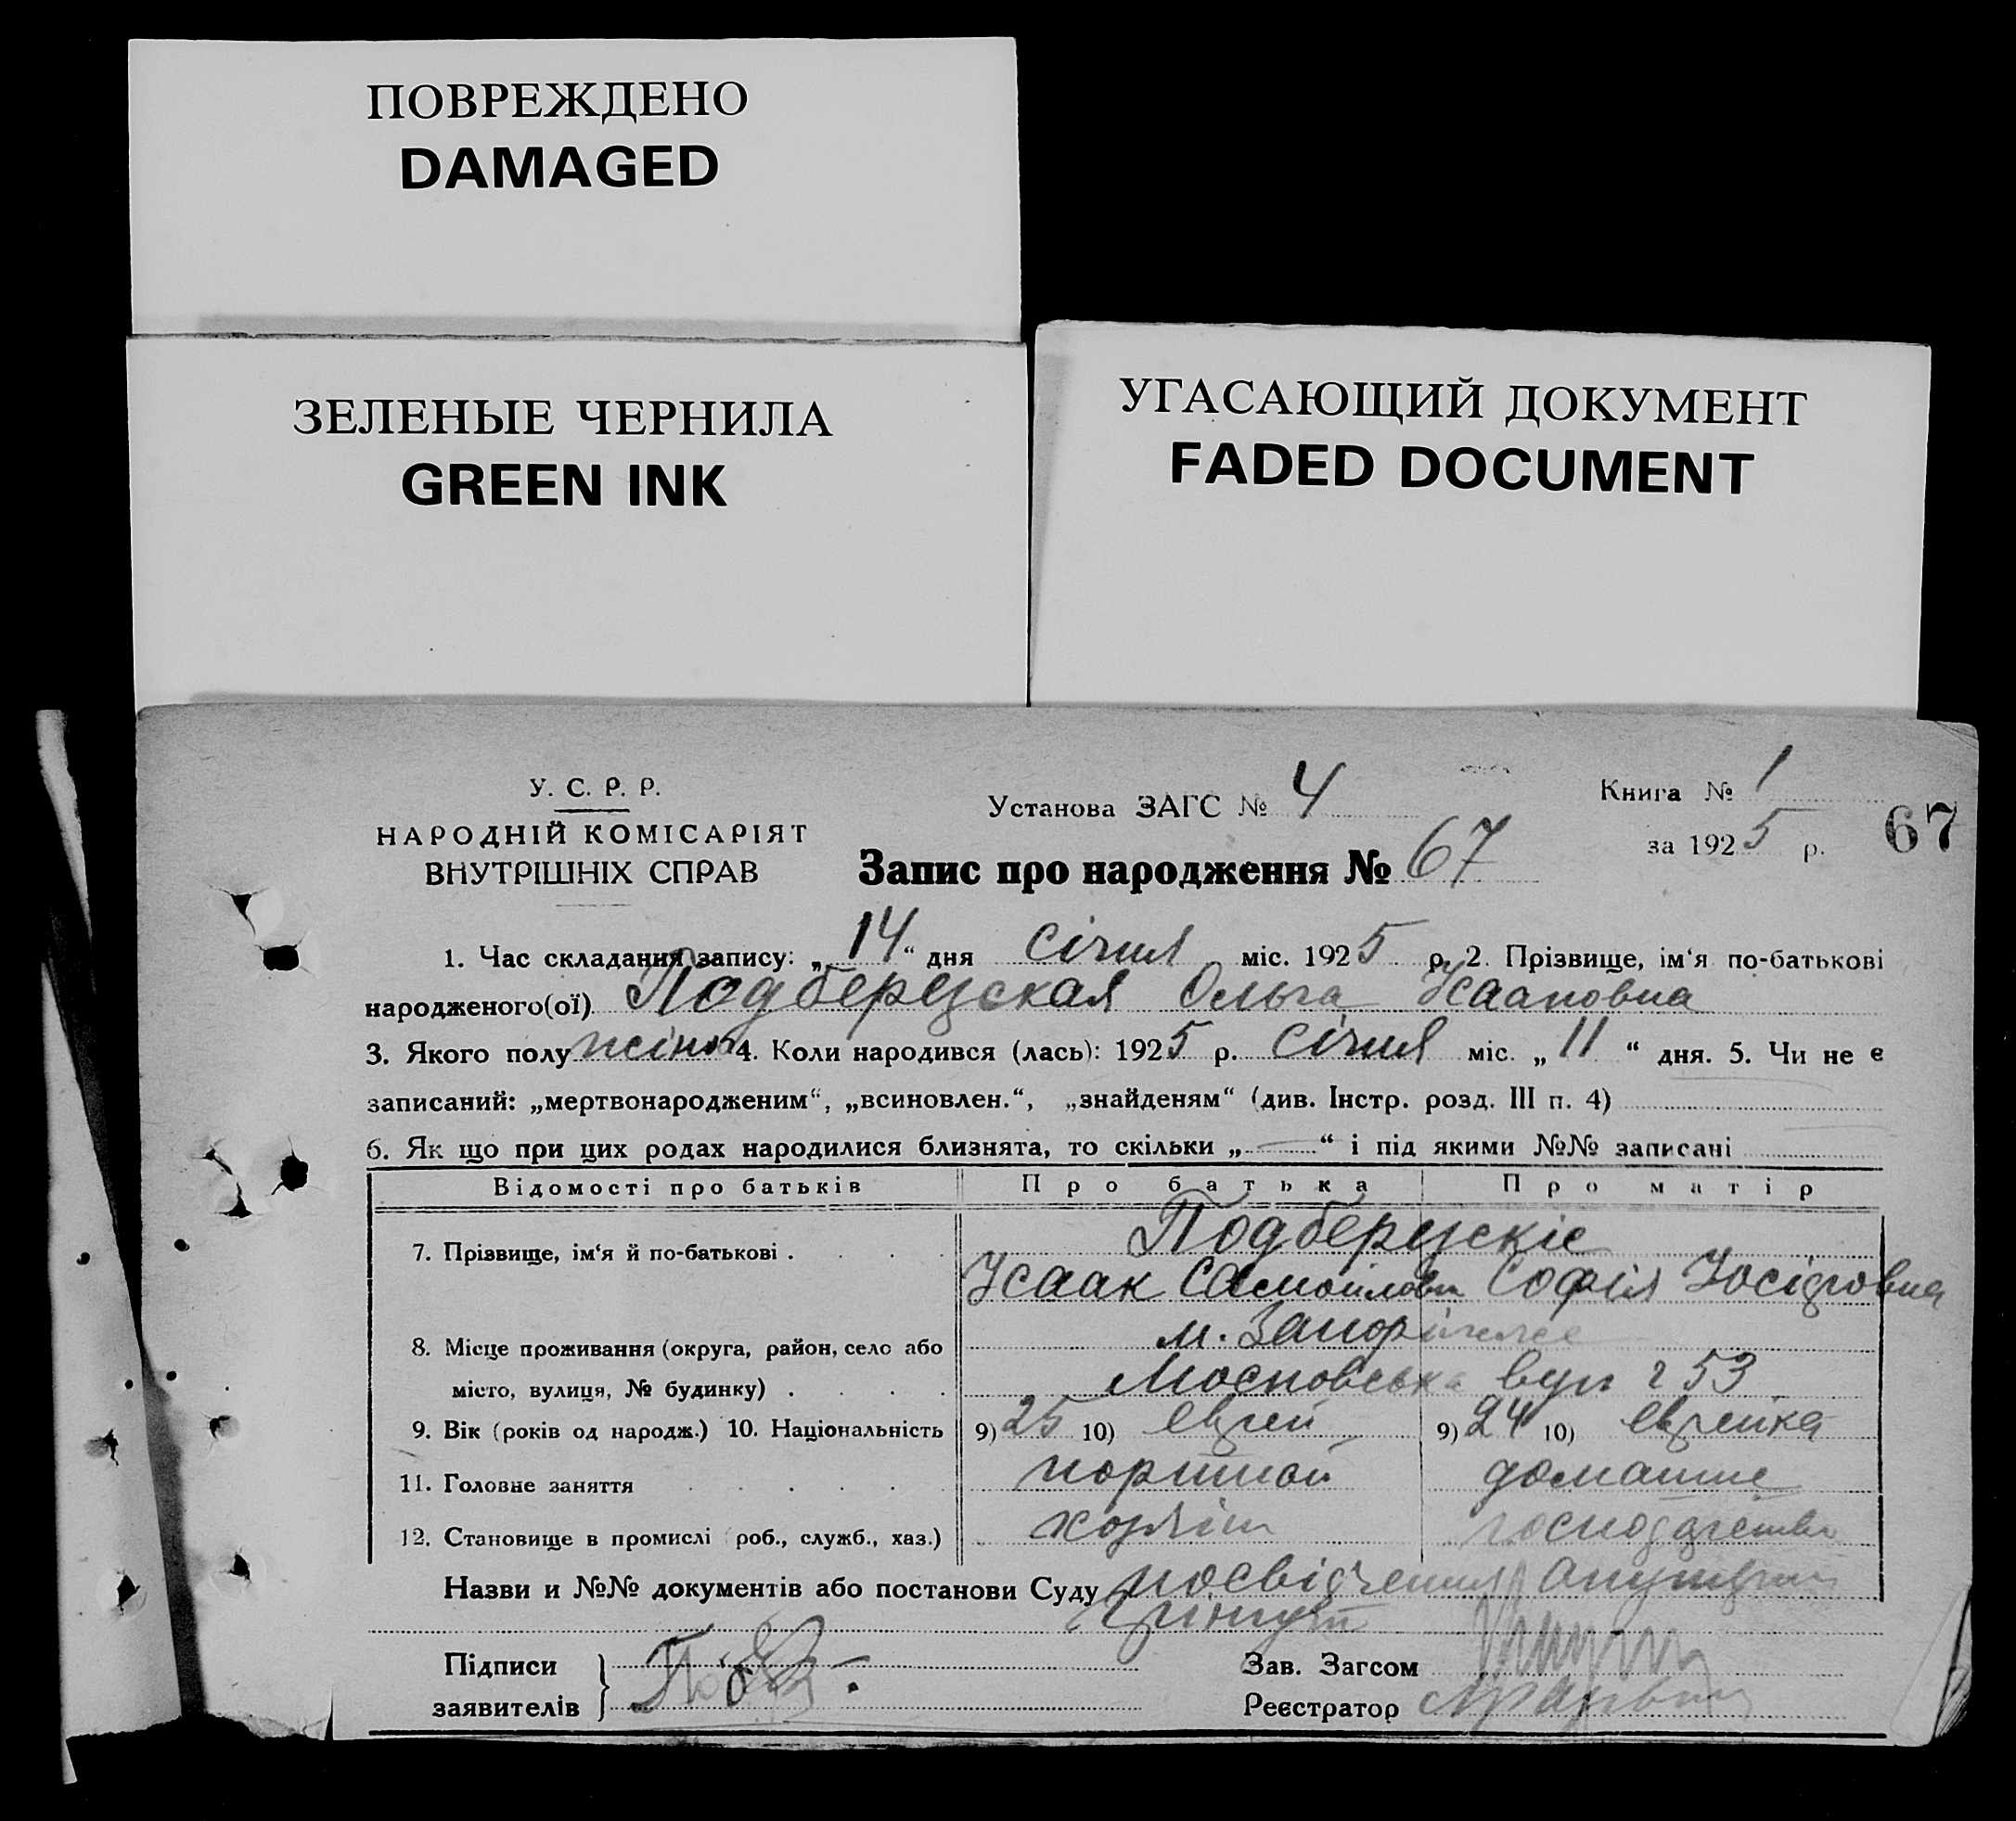 ПОВРЕЖДЕНО
DAMAGED
ЗЕЛЕНЫЕ ЧЕРНИЛА
GREEN INK
УГАСАЮЩИЙ ДОКУМЕНТ
FADED DOCUMENT
У. С. Р. Р.
НАРОДНІЙ КОМІСАРІЯТ
ВНУТРІШНІХ СПРАВ
Установа ЗАГС № 4
Книга № 1
за 1925 р.
67
Запис про народження № 67
1. Час складання запису: „14“ дня січня міс. 1925 р. 2. Прізвище, ім‘я по-батькові
народженого(ої) Подберезская Ольга Исааковна
3. Якого полу жіноч 4. Коли народився (лась): 1925 р. Січня міс. „11“ дня. 5. Чи не є
записаний: „мертвонародженим“, „всиновлен.“, „знайденям“ (див. Інстр. розд. III п. 4)
6. Як що при цих родах народилися близнята, то скільки „—“ і під якими №№ записані
Відомості про батьків Про батька Про матір
7. Прізвище, ім‘я й по-батькові . . . . Подберезскіе
Исаак Самойлович Софія Иосіфовна
8. Місце проживання (округа, район, село або м. Запоріжже
місто, вулиця, № будинку) . . . . Московська вул 53
9. Вік (років од народж.) 10. Національність 9) 25 10) еврей 9) 24 10) еврейка
11. Головне заняття . . . . . . портной домашне
12. Становище в промислі (роб., служб., хаз.) хозяін господарство
Назви и №№ документів або постанови Суду посвідчення
Підписи
заявителів
Зав. Загсом
Реєстратор